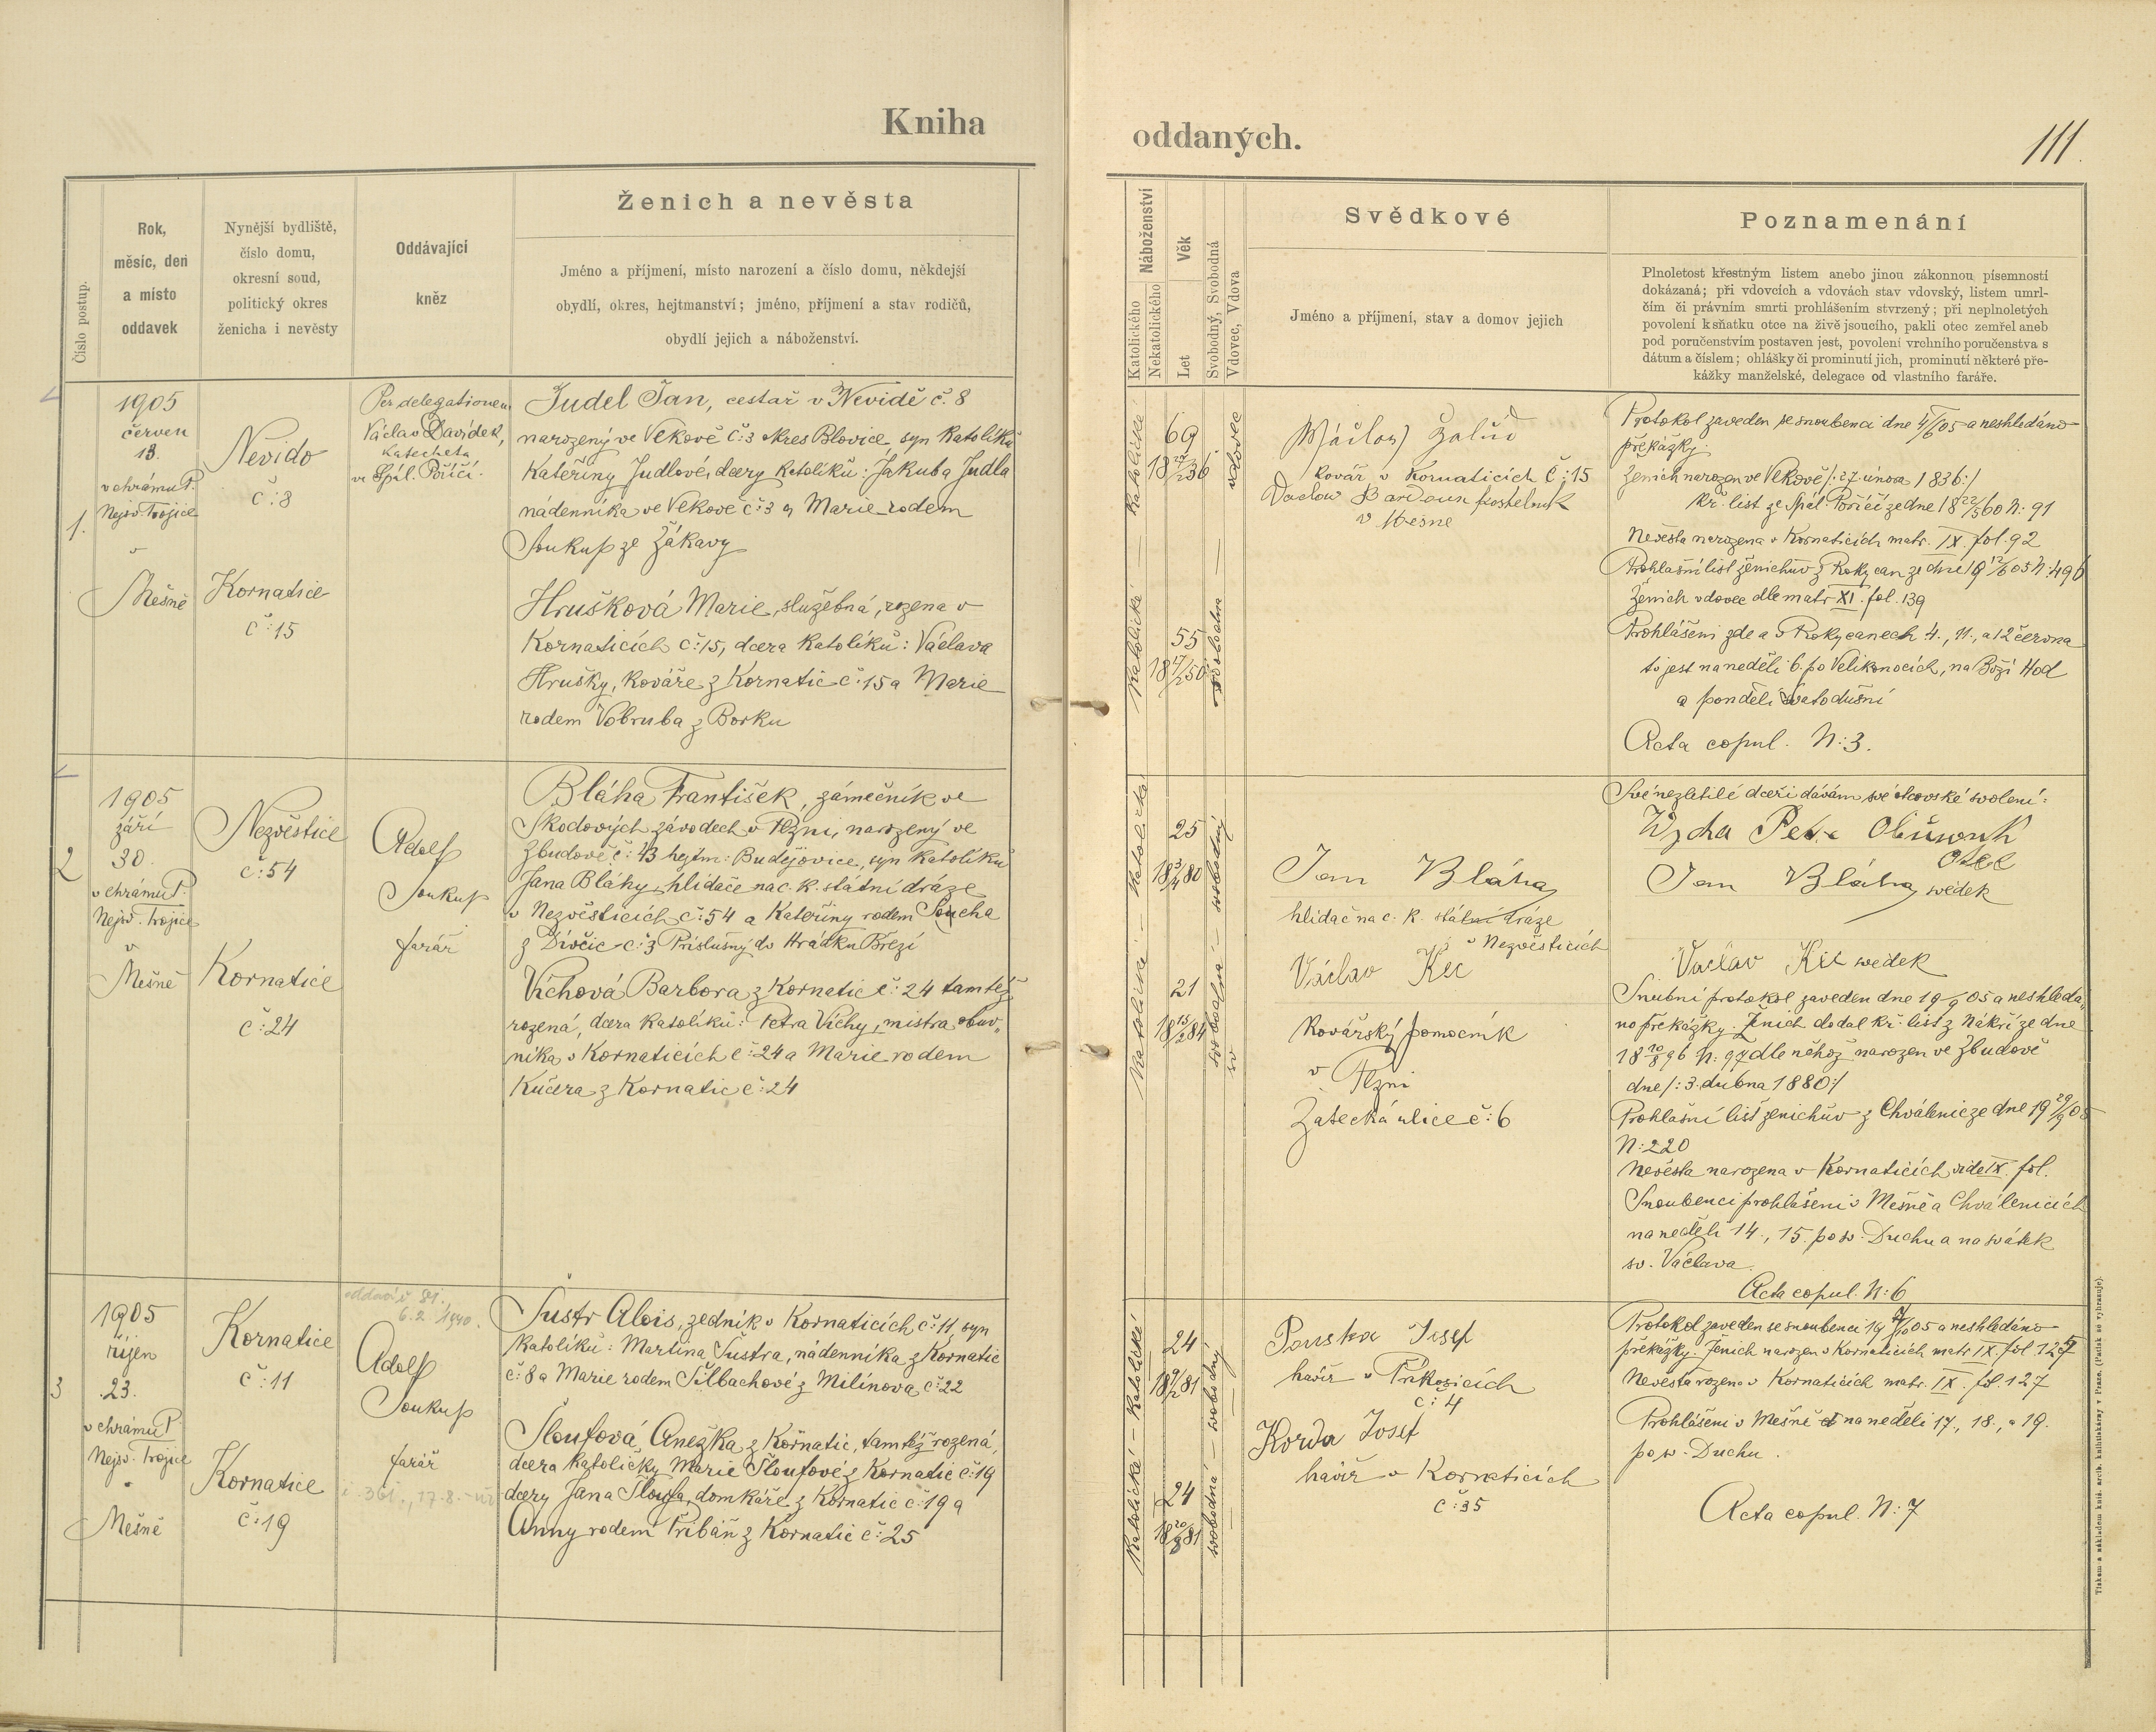 Kniha
Číslo postup.
Rok,
měsíc, den
a místo
oddavek
Nynější bydliště,
číslo domu,
okresní soud,
politický okres
ženicha i nevěsty
Oddávající
kněz
Ženich a nevěsta
Jméno a příjmení, místo narození a číslo domu, někdejší
obydlí, okres, hejtmanství; jméno, příjmení a stav rodičů,
obydlí jejich a náboženství.
1.
1905
červen
13.
v chrámu P.
Nejsv. Trojice
v
Mešně
Nevido
č:8
Kornatice
č:15
Per delegationem
Václav Davídek,
katecheta
ve Spál. Poříčí.
Judel Jan, cestář v Nevidě č. 8
narozený ve Vlkově č:3 okres Blovice syn katolíků
Kateřiny Judlové, dcery katolíků: Jakuba Judla
nádenníka ve Vlkově č:3 a Marie rodem
Soukup ze Žákavy
Hrušková Marie, služebná, rozena v
Kornaticích č:15, dcera katolíků: Václava
Hrušky, kováře z Kornatic č:15 a Marie
rodem Vobruba z Borku
2
1905
září
30.
v chrámu P.
Nejsv. Trojice
v
Mešně
Nezvěstice
č:54
Kornatice
č:24
Adolf
Soukup
farář
Bláha František, zámečník ve
Škodových závodech v Plzni, narozený ve
Zbudově č:43 hejtm: Budějovice, syn katolíků
Jana Bláhy, hlídače na c. k. státní dráze
v Nezvěsticích č:54 a Kateřiny rodem Soucha
z Dívčic č:3 Příslušný do Hrádku Březí
Víchová Barbora z Kornatic č:24 tamtéž
rozená, dcera katolíků: Petra Víchy, mistra obuv„
níka v Kornaticích č:24 a Marie rodem
Kučera z Kornatic č:24
3
1905
říjen
23.
v chrámu P.
Nejsv. Trojice
v
Mešně
Kornatice
č:11
Kornatice
č:19
6.2. 1940.
Adolf
Soukup
farář
Šustr Alois, zedník v Kornaticích č:11, syn
katolíků: Martina Šustra, nádenníka z Kornatic
č:8 a Marie rodem Šilbachové z Milínova č:22
Šloufová Anežka z Kornatic, tamtéž rozená,
dcera katoličky Marie Šloufové z Kornatic č:19
dcery Jana Šloufa, domkáře z Kornatic č:19 a
Anny rodem Přibáň z Kornatic č:25
oddaných.
111.
Náboženství
Katolického
Nekatolického
Věk
Let
Svobodný, Svobodná
Vdovec, Vdova
Svědkové
Jméno a příjmení, stav a domov jejich
Poznamenání
Plnoletost křestným listem anebo jinou zákonnou písemností
dokázaná; při vdovcích a vdovách stav vdovský, listem umrl-
čím či právním smrti prohlášením stvrzený; při neplnoletých
povolení k sňatku otce na živě jsoucího, pakli otec zemřel aneb
pod poručenstvím postaven jest, povolení vrchního poručenstva s
dátum a číslem; ohlášky či prominutí jich, prominutí některé pře-
kážky manželské, delegace od vlastního faráře.
katolické
69
18 27/2 36
vdovec
katolické
55
18 17/2 50
svobodna
Václav Žalud
kovář v Kornaticích č:15
v Mešně
Protokol zaveden se snoubenci dne 4/6 05 a neshledáno
překážky
Ženich narozen ve Vlkově /:27. února 1836:/
kř. list ze Spál. Poříčí ze dne 18 22/5 60 N: 91
Nevěsta narozena v Kornaticích matr. IX fol. 92
Prohlašní list ženichův z Rokycan ze dne 19 12/6 05 N:496
Ženich vdovec dle matr XI. fol. 139
Prohlášeni zde a v Rokycanech 4., 11., a 12 června
to jest na neděli 6. po Velikonocích, na Boží Hod
a pondělí Svatodušní
Acta copul. N:3.
katolické
25
18 3/4 80
svobodný
katolické
21
18 15/2 84
svobodná
Jan Bláha
hlídač na c. k. státní dráze
v Nezvěsticích
Václav Kec
kovářský pomocník
v Plzni
Žatecká ulice č:6
Své nezletilé dceři dávám své otcovské svolení:
otec
Jan Bláha, svědek
Václav Kec svědek
Snubní protokol zaveden dne 19 /9 05 a neshledá„
no překážky. Ženich dodal kř. list z Nákří ze dne
18 10/8 96 N: 97 dle něhož narozen ve Zbudově
dne /:3. dubna 1880:/
Prohlašní list ženichův z Chválenic ze dne 19 29/9 05
N:220
Nevěsta narozena v Kornaticích vide IX. fol.
Snoubenci prohlášeni v Mešně a Chválenicích
na neděli 14., 15. po sv. Duchu a na svátek
sv. Václava.
Acta copul. N:6
katolické
24
svobodný
katolické
24
18 20/8 81
svobodná
Pouska Josef
havíř v Příkosicích
č:4
Korda Josef
havíř v Kornaticích
č:35
Protokol zaveden se snoubenci 19 /10 05 a neshledáno
překážky. Ženich narozen v Kornaticích matr IX. fol. 127
Nevěsta rozena v Kornaticích matr. IX. fol. 127
Prohlášeni v Mešně na neděli 17., 18., a 19.
po sv. Duchu.
Acta copul. N:7
Tiskem a nákladem kníž. arcib. knihtiskárny v Praze. (Patisk se vyhrazuje).